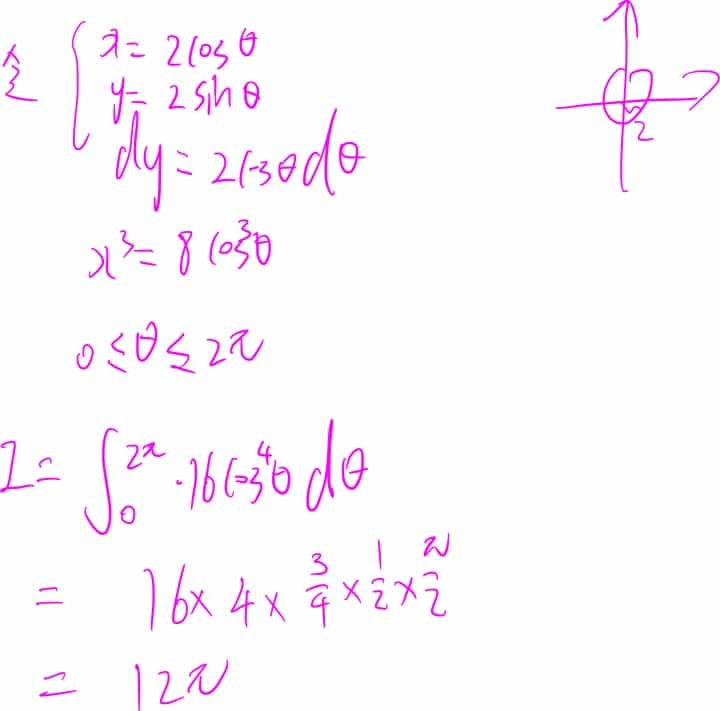 令 { x = 2cosθ
y = 2sinθ
dy = 2cosθdθ
2
x³ = 8cos³θ
0 ≤ θ ≤ 2π
I = ∫₀^{2π} ·16cos⁴θ dθ
= 16 × 4 × 3/4 × 1/2 × π/2
= 12π